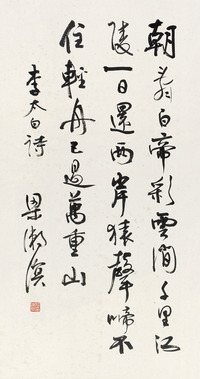 朝辭白帝彩雲間千里江
陵一日還兩岸猿聲啼不
住輕舟已過萬重山
李太白詩
梁漱溟